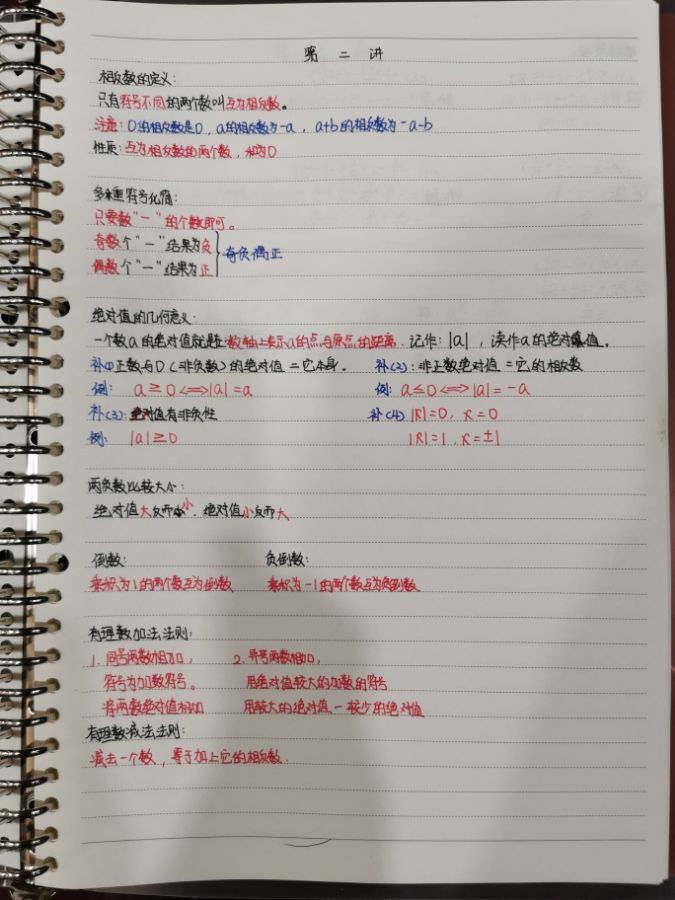 第 二 讲
相反数的定义:
只有符号不同的两个数叫互为相反数。
注意:0的相反数是0,a的相反数为-a,a+b的相反数为-a-b
性质:互为相反数的两个数,和为0
多重符号化简:
只要数"一"的个数即可。
奇数个"一"结果为负
偶数个"一"结果为正
奇负偶正
绝对值的几何意义:
一个数a的绝对值就是:数轴上表示a的点与原点的距离. 记作:|a|,读作a的绝对值。
补(1)正数与0(非负数)的绝对值=它本身。 补(2):非正数绝对值=它的相反数
例: a≥0⟺|a|=a 例: a≤0⟺|a|=-a
补(3):绝对值有非负性 补(4) |x|=0, x=0
例: |a|≥0 |x|=1, x=±1
两负数比较大小:
绝对值大反而小.绝对值小反而大
倒数: 负倒数:
乘积为1的两个数互为倒数 乘积为-1的两个数互为负倒数
有理数加法法则:
1. 同号两数相加, 2. 异号两数相加,
符号为加数符号。 用绝对值较大的加数的符号
将两数绝对值相加 用较大的绝对值-较少的绝对值
有理数减法法则:
减去一个数,等于加上它的相反数.